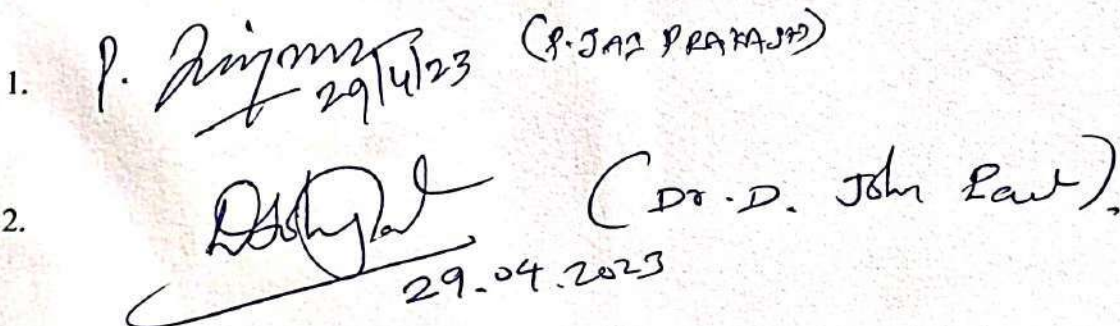 1. P. 29/4/23 (P. JAI PRAKASH)
2. (Dr. D. John Paul).
29.04.2023